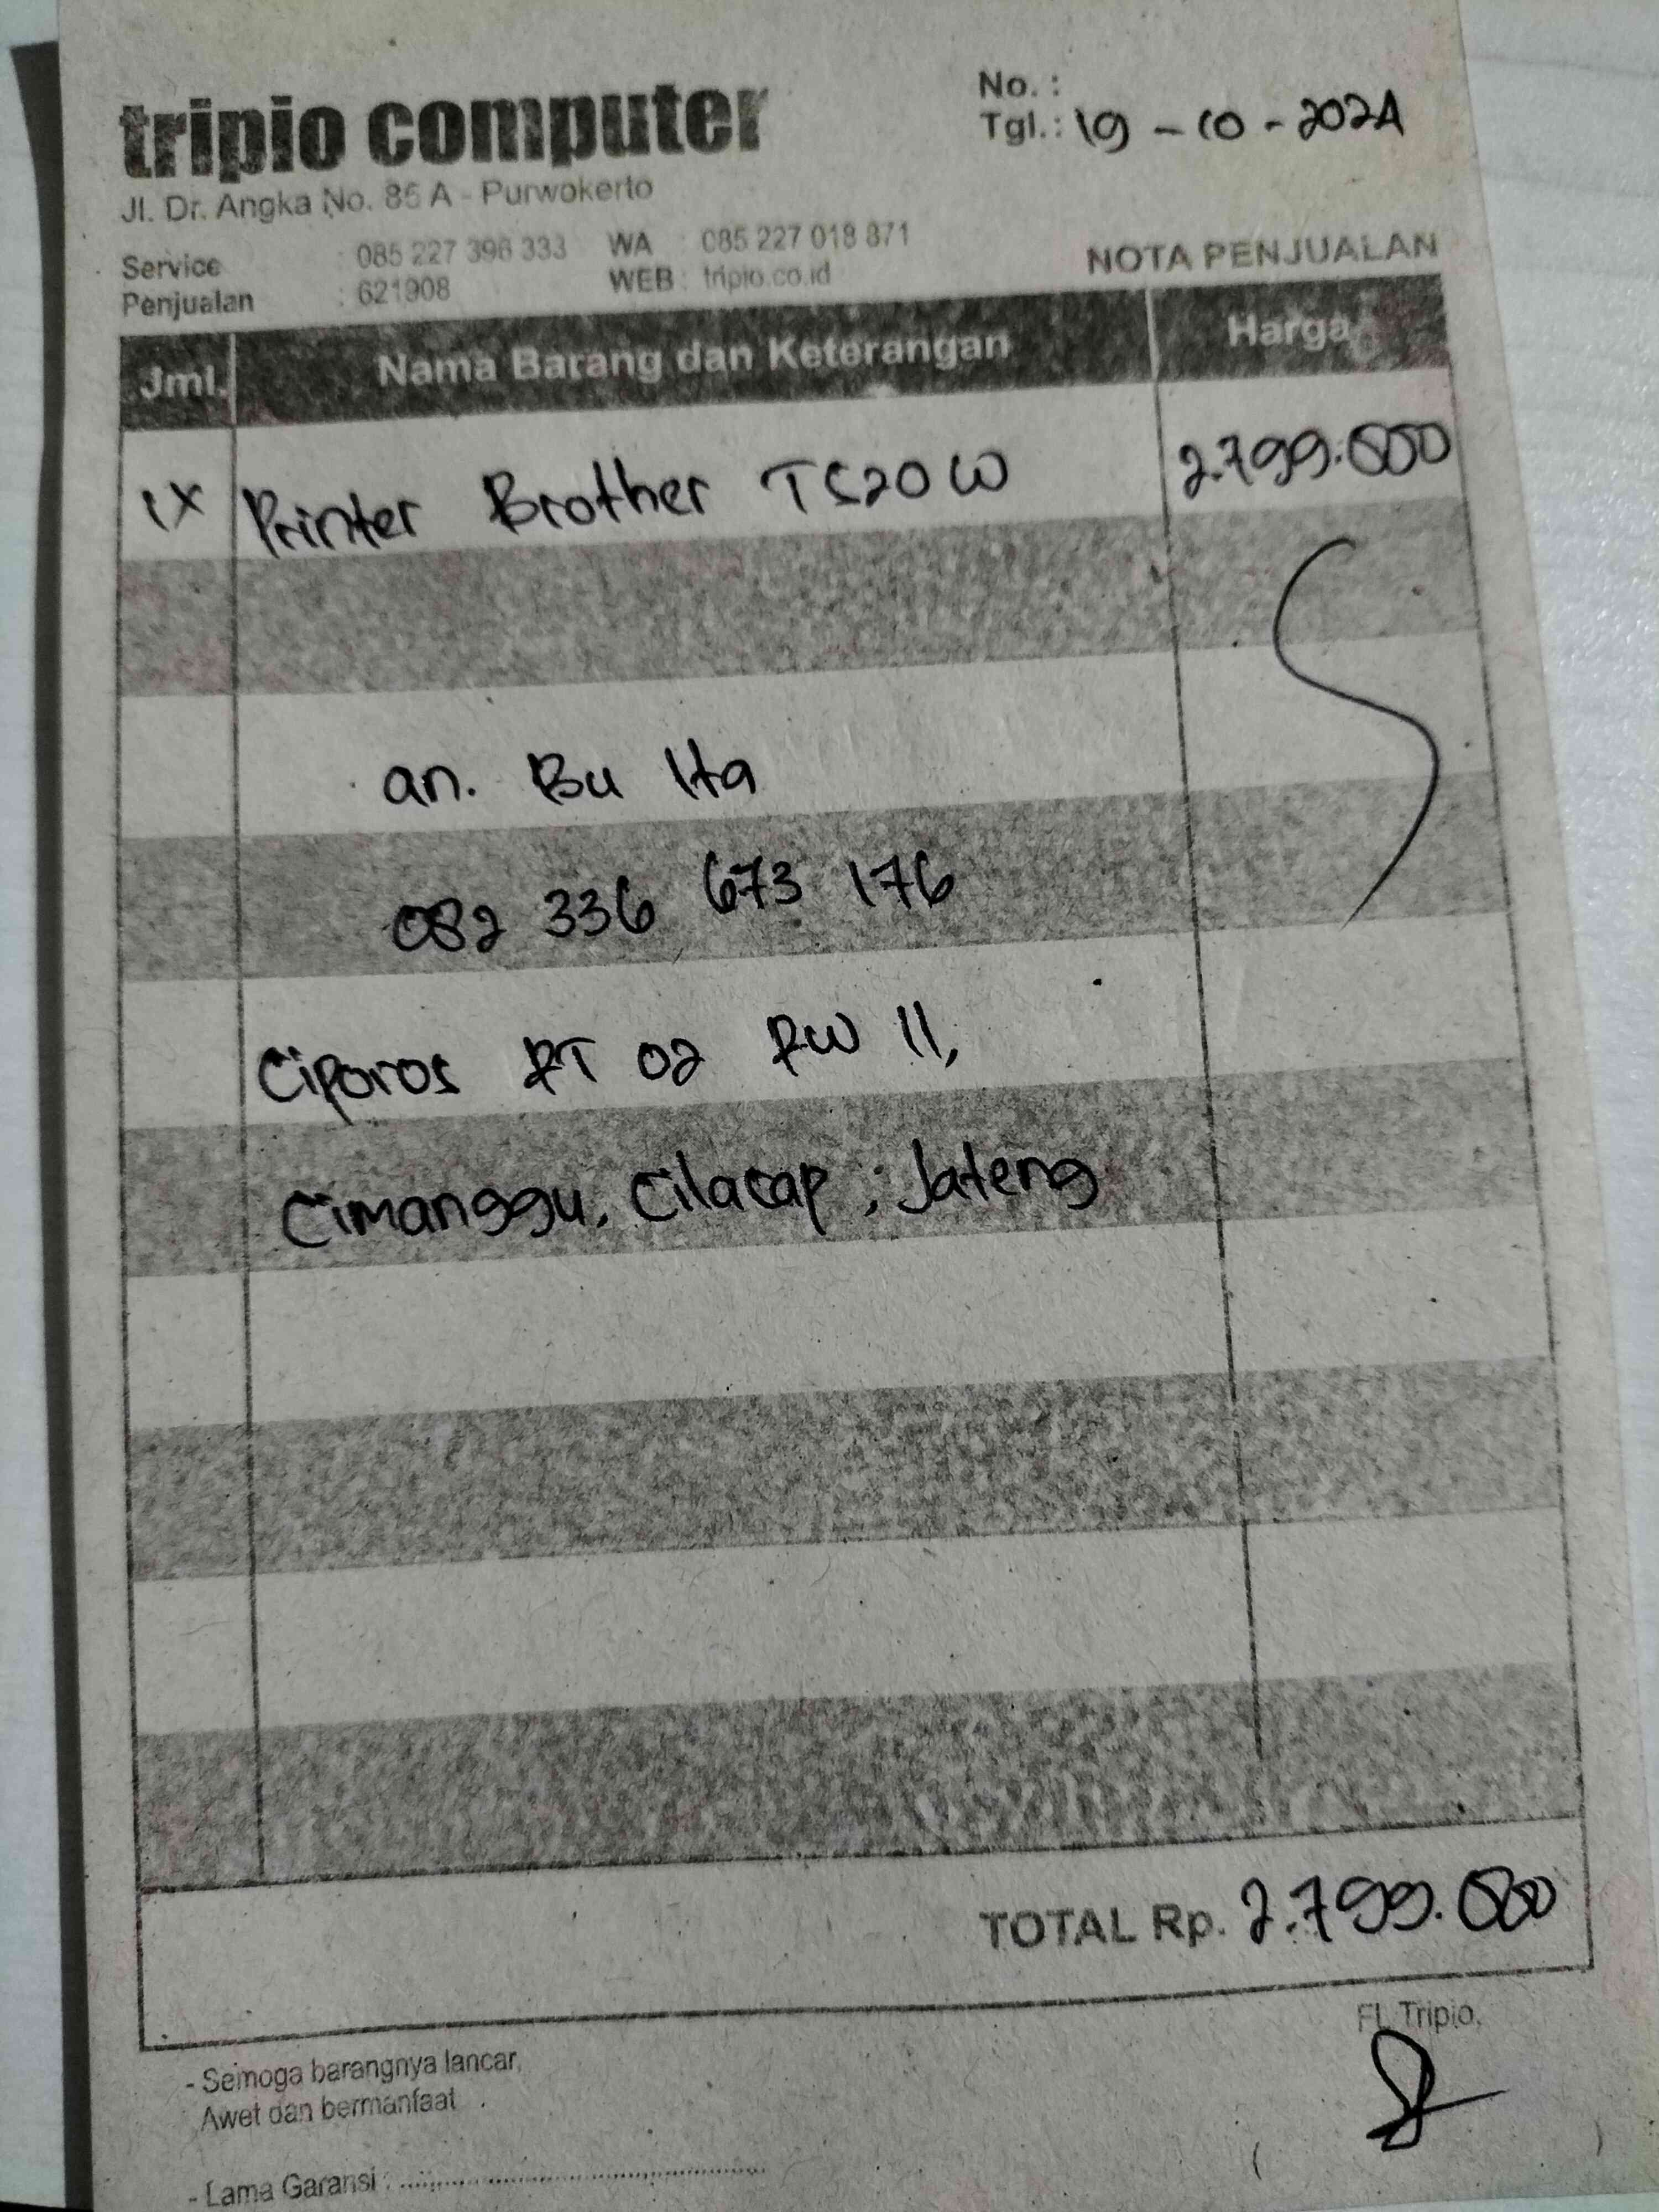 tripio computer
No. :
Tgl.: 19 - 10 - 2024
Jl. Dr. Angka No. 85 A - Purwokerto
Service : 085 227 396 333 WA : 085 227 018 871
Penjualan : 621908 WEB : tripio.co.id
NOTA PENJUALAN
Jml. Nama Barang dan Keterangan Harga
1x Printer Brother T520W 2.799.000
an. Bu Ita
082 336 673 176
Ciporos RT 02 RW 11,
Cimanggu, Cilacap, Jateng
TOTAL Rp. 2.799.000
Tripio,
- Semoga barangnya lancar,
Awet dan bermanfaat
- Lama Garansi : ........................................
( )